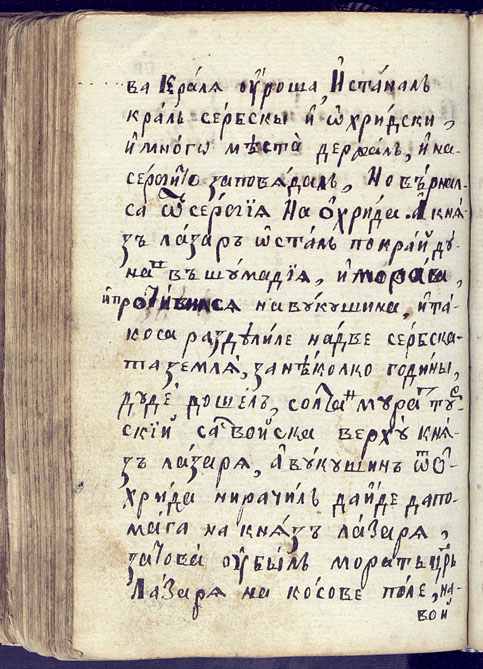 ва Краля оуроша И станалъ
краль сербскы и ѡхридски,
и многѡ мѣста держалъ, и на
сербїю заповядалъ, Но вѣрнал-
са ѿ сербїя На Охрида. А кня-
зъ лазаръ ѡсталъ покрай ду-
навъ въ шумадїя, и морава,
и противился на вукушина, и та-
коса раздѣлиле на две сербска-
та земля, за нѣколко години,
дуде дошелъ, солтан мурат тур-
скїй са войска верху кня-
зъ лазаря, а вукушинъ ѿ о-
хрида нирачилъ да иде да по-
мага на князъ лазаря,
затова оубылъ моратъ црь
Лазаря на косове поле, на-
вой